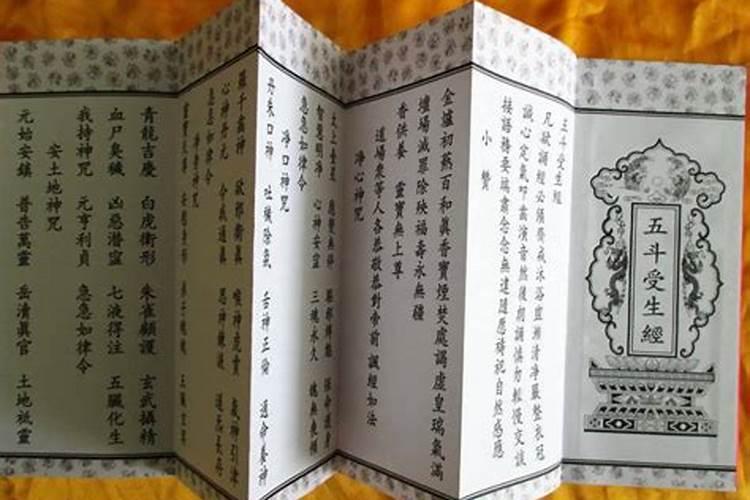 五斗受生經
五斗受生經
凡欲誦經必須齋戒沐浴盥漱清淨嚴整衣冠
誠心定氣叩齒演音然後朗誦慎勿輕慢交談
接語務要端肅念念無違隨應禱祀自然感應
小讚
金爐初爇百和真香寶煙焚處謁虛皇瑞氣滿
壇場滅罪除殃福壽永無疆
香供養 靈寶無上尊
道場衆等人各恭敬恭對帝前 誦經如法
淨心神咒
太上台星 應變無停 驅邪縛魅 保命護身
智慧明淨 心神安寧 三魂永久 魄無喪傾
急急如律令
淨口神咒
丹朱口神 吐穢除氛 舌神正倫 通命養神
羅千齒神 卻邪衛真 喉神虎賁 炁神引津
心神丹元 令我通真 思神鍊液 道炁長存
急急如律令
淨身神咒
靈寶天尊 安慰身形 弟子魂魄 五臟玄冥
青龍吉慶 白虎衛形 朱雀顧護 玄武攝精
血尸臭穢 凶惡潛窪 七液得注 五臟化生
我持神咒 元亨利貞 急急如律令
安土地神咒
元始安鎮 普告萬靈 岳清真官 土地祇靈